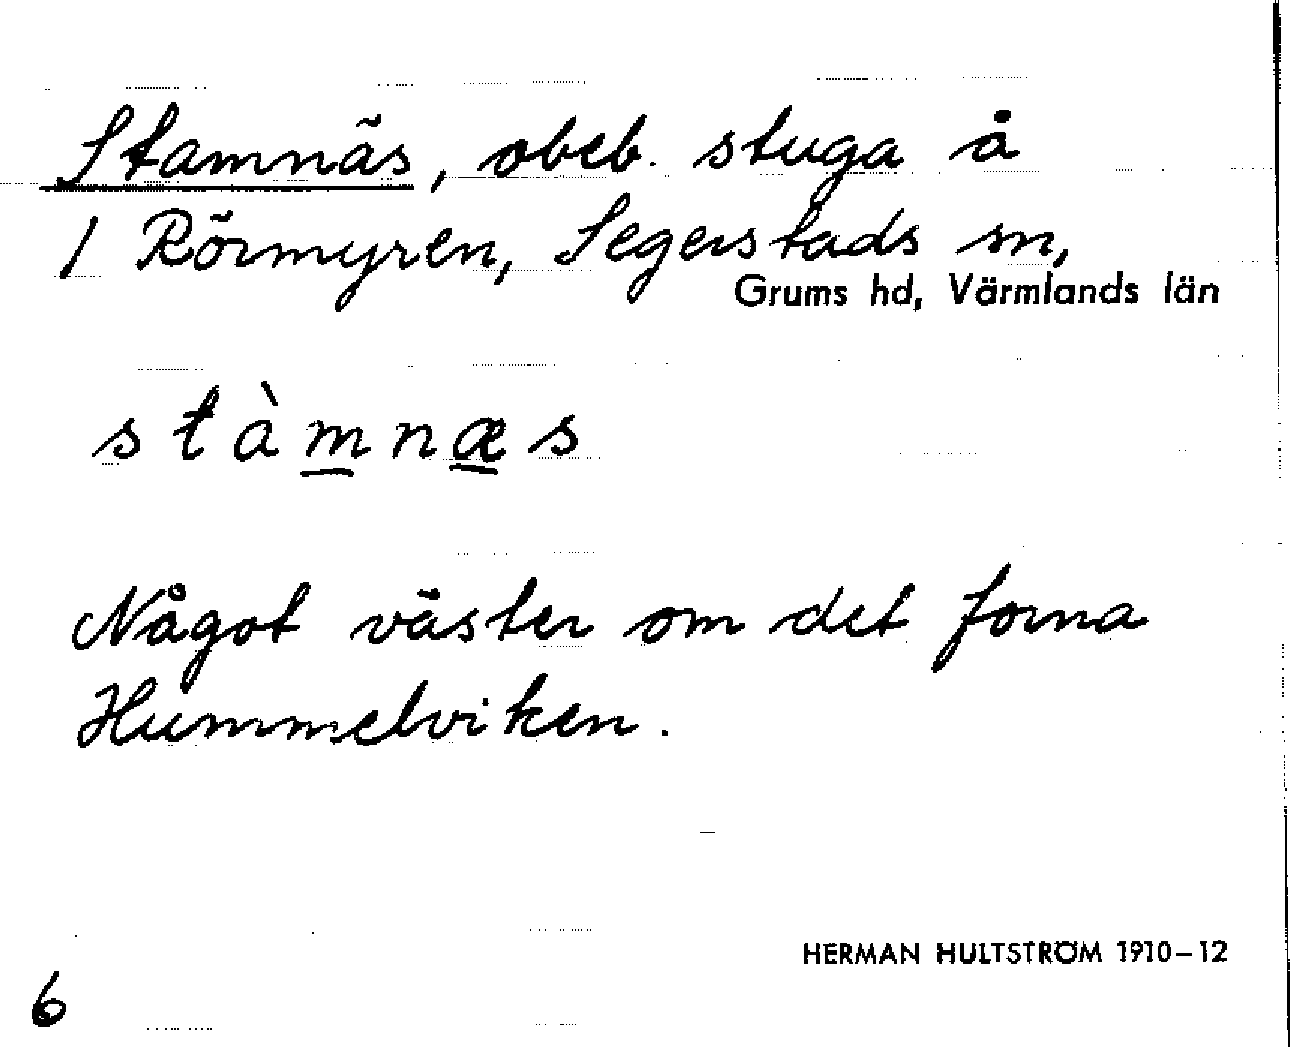 Stamnäs, obeb. stuga å
/ Rörmyren, Segerstads sn,
Grums hd, Värmlands län
stàmnæs
Något väster om det forna
Hummelviken.
HERMAN HULTSTRÖM 1910–12
6